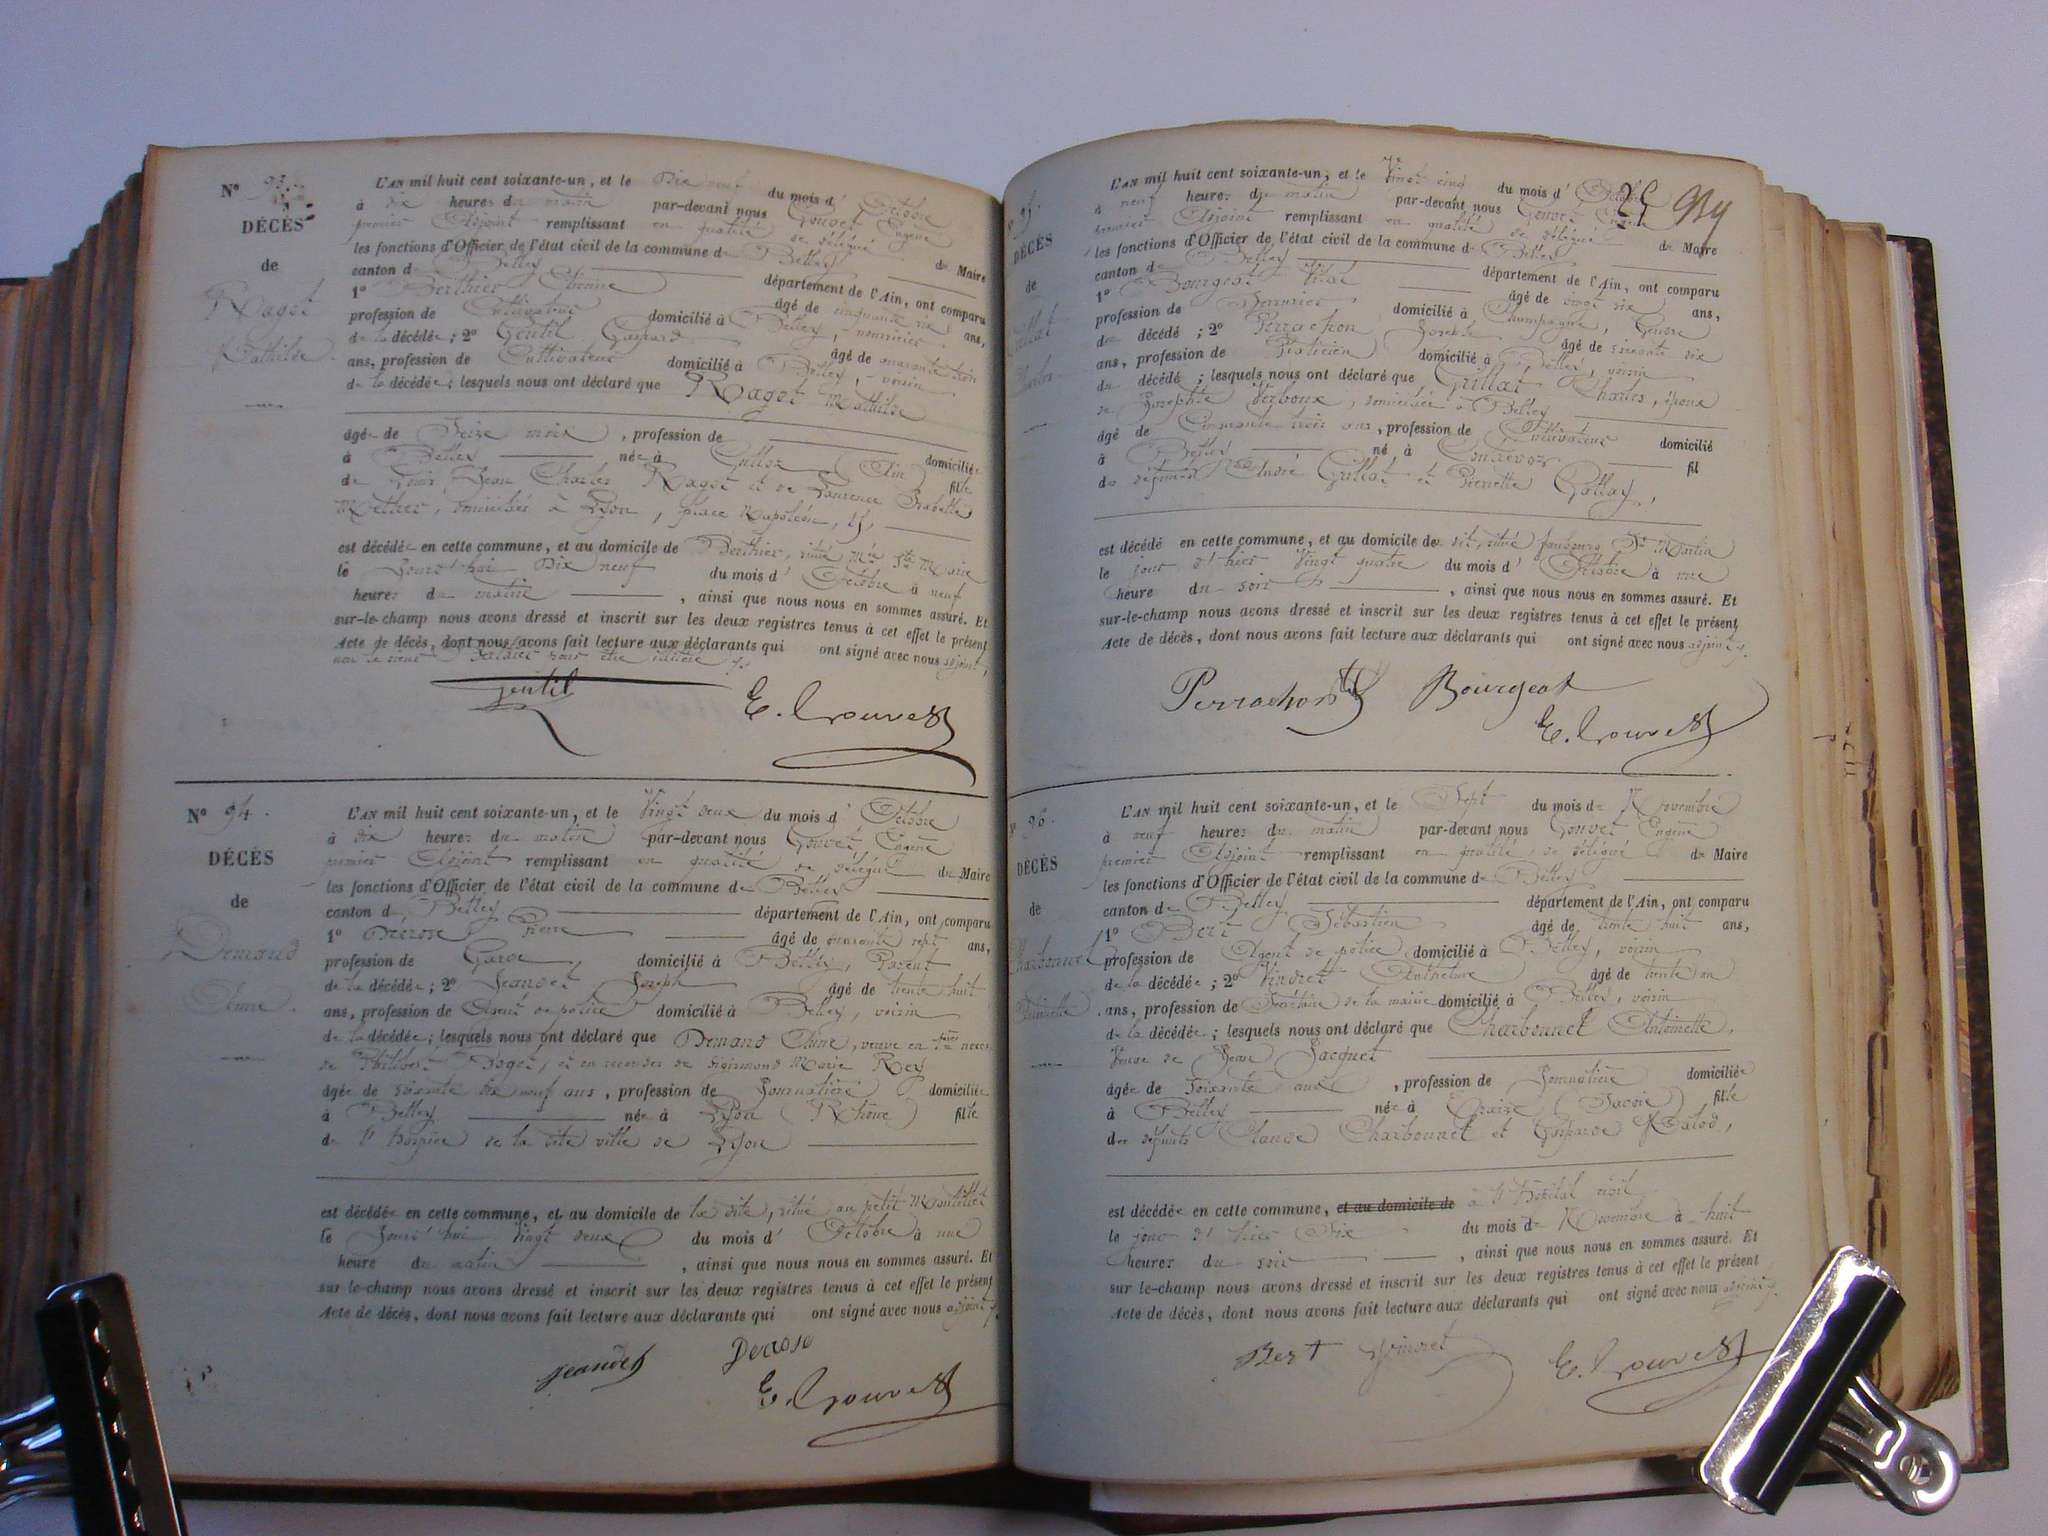 N° 93
DÉCÈS
de
Ragot
Mathilde
L'AN mil huit cent soixante-un, et le Dix neuf du mois d'Octobre
à dix heures du matin par-devant nous Gouvet Eugène
premier Adjoint remplissant en qualité de délégué du Maire
les fonctions d'Officier de l'état civil de la commune de Belley
canton de Belley département de l'Ain, ont comparu
1° Berthier Etienne âgé de cinquante six ans,
profession de Cultivateur domicilié à Belley, nourricier
de la décédée ; 2° Gentil Gaspard âgé de quarante trois
ans, profession de Cultivateur domicilié à Belley, voisin
de la décédée ; lesquels nous ont déclaré que Ragot Mathilde
âgée de Seize mois, profession de domiciliée
à Belley née à Culloz (Ain) fille
de Louis Jean Charles Ragot et de Laurence Isabelle
domiciliés à Lyon, place Napoléon, 15,
est décédée en cette commune, et au domicile de Berthier, situé Ste Marie
le Jourd'hui Dix neuf du mois d'Octobre à neuf
heures du matin, ainsi que nous nous en sommes assuré. Et
sur-le-champ nous avons dressé et inscrit sur les deux registres tenus à cet effet le présent
Acte de décès, dont nous avons fait lecture aux déclarants qui ont signé avec nous adjoint,
non le sieur Berthier pour être illitéré
Gentil
E. Gouvet
N° 94
DÉCÈS
de
Demand
L'AN mil huit cent soixante-un, et le Vingt deux du mois d'Octobre
à dix heures du matin par-devant nous Gouvet Eugène
premier Adjoint remplissant en qualité de délégué du Maire
les fonctions d'Officier de l'état civil de la commune de Belley
canton de Belley département de l'Ain, ont comparu
1° Decrose Pierre âgé de quarante sept ans,
profession de Garde domicilié à Belley, Parent
de la décédée ; 2° Jeandet Joseph âgé de trente huit
ans, profession de Agent de police domicilié à Belley, voisin
de la décédée ; lesquels nous ont déclaré que Demand, veuve en
de Philibert et en secondes de Sigismond Marie Rey
âgée de soixante dix neuf ans, profession de Journalière domiciliée
à Belley née à Lyon (Rhône) fille
de l'hospice de la dite ville de Lyon
est décédée en cette commune, et au domicile de la dite, situé au petit
le Jourd'hui Vingt deux du mois d'Octobre à une
heure du matin, ainsi que nous nous en sommes assuré. Et
sur-le-champ nous avons dressé et inscrit sur les deux registres tenus à cet effet le présent
Acte de décès, dont nous avons fait lecture aux déclarants qui ont signé avec nous adjoint
Jeandet Decrose
E. Gouvet
DÉCÈS
de
L'AN mil huit cent soixante-un, et le Vingt cinq du mois d'Octobre
à neuf heures du matin par-devant nous Gouvet Eugène
premier Adjoint remplissant en qualité de délégué du Maire
les fonctions d'Officier de l'état civil de la commune de Belley
canton de Belley département de l'Ain, ont comparu
1° Bourgeat Vital âgé de vingt six ans,
profession de Serrurier domicilié à Champagne, Gendre
du décédé ; 2° Perrachon Joseph âgé de soixante six
ans, profession de Praticien domicilié à Belley, voisin
du décédé ; lesquels nous ont déclaré que Grillat Charles, époux
de Josephte, domiciliée à Belley
âgé de Cinquante trois ans, profession de Cultivateur domicilié
à Belley né à Contrevoz fils
des défunts André Grillat et Pierrette Gallay,
est décédé en cette commune, et au domicile de dit, situé faubourg St Martin
le jour d'hier Vingt quatre du mois d'Octobre à une
heure du soir, ainsi que nous nous en sommes assuré. Et
sur-le-champ nous avons dressé et inscrit sur les deux registres tenus à cet effet le présent
Acte de décès, dont nous avons fait lecture aux déclarants qui ont signé avec nous adjoint
Perrachon Bourgeat
E. Gouvet
96
DÉCÈS
de
Charbonnet
Antoinette
L'AN mil huit cent soixante-un, et le Sept du mois de Novembre
à neuf heures du matin par-devant nous Gouvet Eugène
premier Adjoint remplissant en qualité de délégué du Maire
les fonctions d'Officier de l'état civil de la commune de Belley
canton de Belley département de l'Ain, ont comparu
1° Bert Sébastien âgé de trente huit ans,
profession de Agent de police domicilié à Belley, voisin
de la décédée ; 2° Vindret Anthelme âgé de trente un
ans, profession de Secrétaire de la mairie domicilié à Belley, voisin
de la décédée ; lesquels nous ont déclaré que Charbonnet Antoinette,
Veuve de Jean Jacquet
âgée de Soixante ans, profession de Journalière domiciliée
à Belley née à (Savoie) fille
des défunts Claude Charbonnet et Gasparde
est décédée en cette commune, et au domicile de à l'hôpital civil
le jour d'hier Six du mois de Novembre à huit
heures du soir, ainsi que nous nous en sommes assuré. Et
sur-le-champ nous avons dressé et inscrit sur les deux registres tenus à cet effet le présent
Acte de décès, dont nous avons fait lecture aux déclarants qui ont signé avec nous adjoint
Bert Vindret E. Gouvet